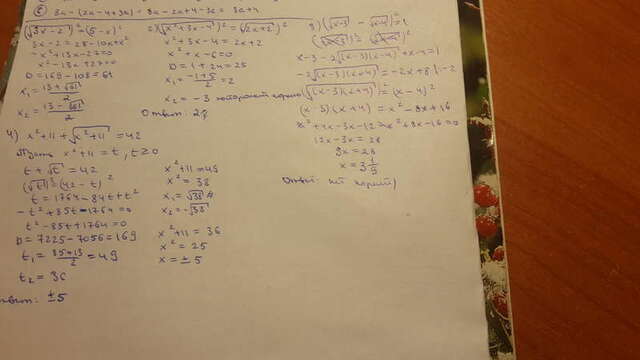 8x - (2x - 4 + 3x) = 8x - 2x + 4 - 3x = 3x + 4
(√3x - 2)² = (5 - x)²
3x - 2 = 25 - 10x + x²
- x² + 13x - 27 = 0
x² - 13x + 27 = 0
D = 169 - 108 = 61
x₁ = (13 + √61)/2
x₂ = (13 - √61)/2
2) (√x² + 3x - 4)² = (√2x + 2)²
x² + 3x - 4 = 2x + 2
x² + x - 6 = 0
D = 1 + 24 = 25
x₁ = (-1 + 5)/2 = 2
x₂ = -3
Ответ: 2
3) √x-3 - √x+4 = 1
x - 3 - 2√(x-3)(x+4) + x + 4 = 1
-2√(x-3)(x+4) = -2x + 8 |: -2
(√(x-3)(x+4))² = (x - 4)²
(x - 3)(x + 4) = x² - 8x + 16
x² + 4x - 3x - 12 - x² + 8x - 16 = 0
12x - 3x = 28
9x = 28
x = 3 1/9
Ответ: нет корней
4) x² + 11 + √x² + 11 = 42
Пусть x² + 11 = t, t ≥ 0
t + √t = 42
(√t)² = (42 - t)²
t = 1764 - 84t + t²
- t² + 85t - 1764 = 0
t² - 85t + 1764 = 0
D = 7225 - 7056 = 169
t₁ = (85 + 13)/2 = 49
t₂ = 36
x² + 11 = 49
x² = 38
x₁ = √38
x₂ = -√38
x² + 11 = 36
x² = 25
x = ± 5
Ответ: ±5